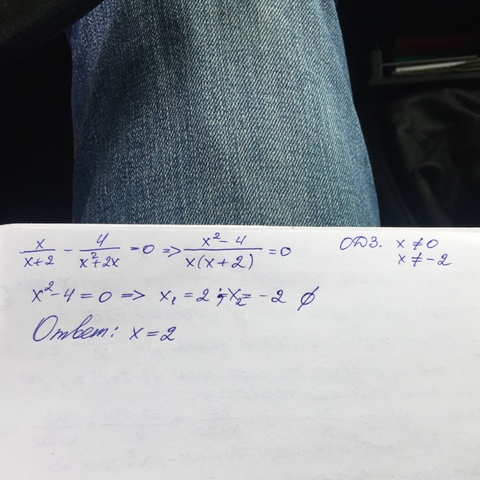 x/(x+2) - 4/(x²+2x) = 0 => (x²-4)/(x(x+2)) = 0   ОДЗ. x ≠ 0
x ≠ -2
x²-4 = 0 => x₁ = 2 ; x₂ = -2 ∅
Ответ: x = 2